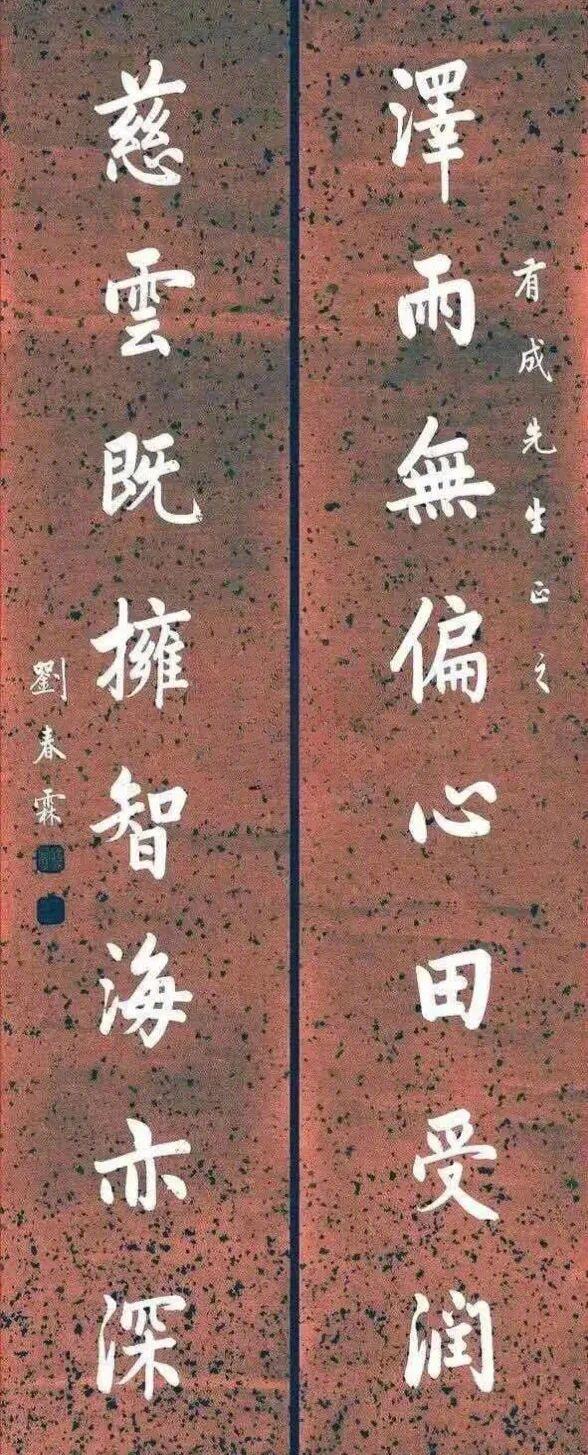 有成先生正之
澤雨無偏心田受润
慈雲既擁智海亦深
劉春霖